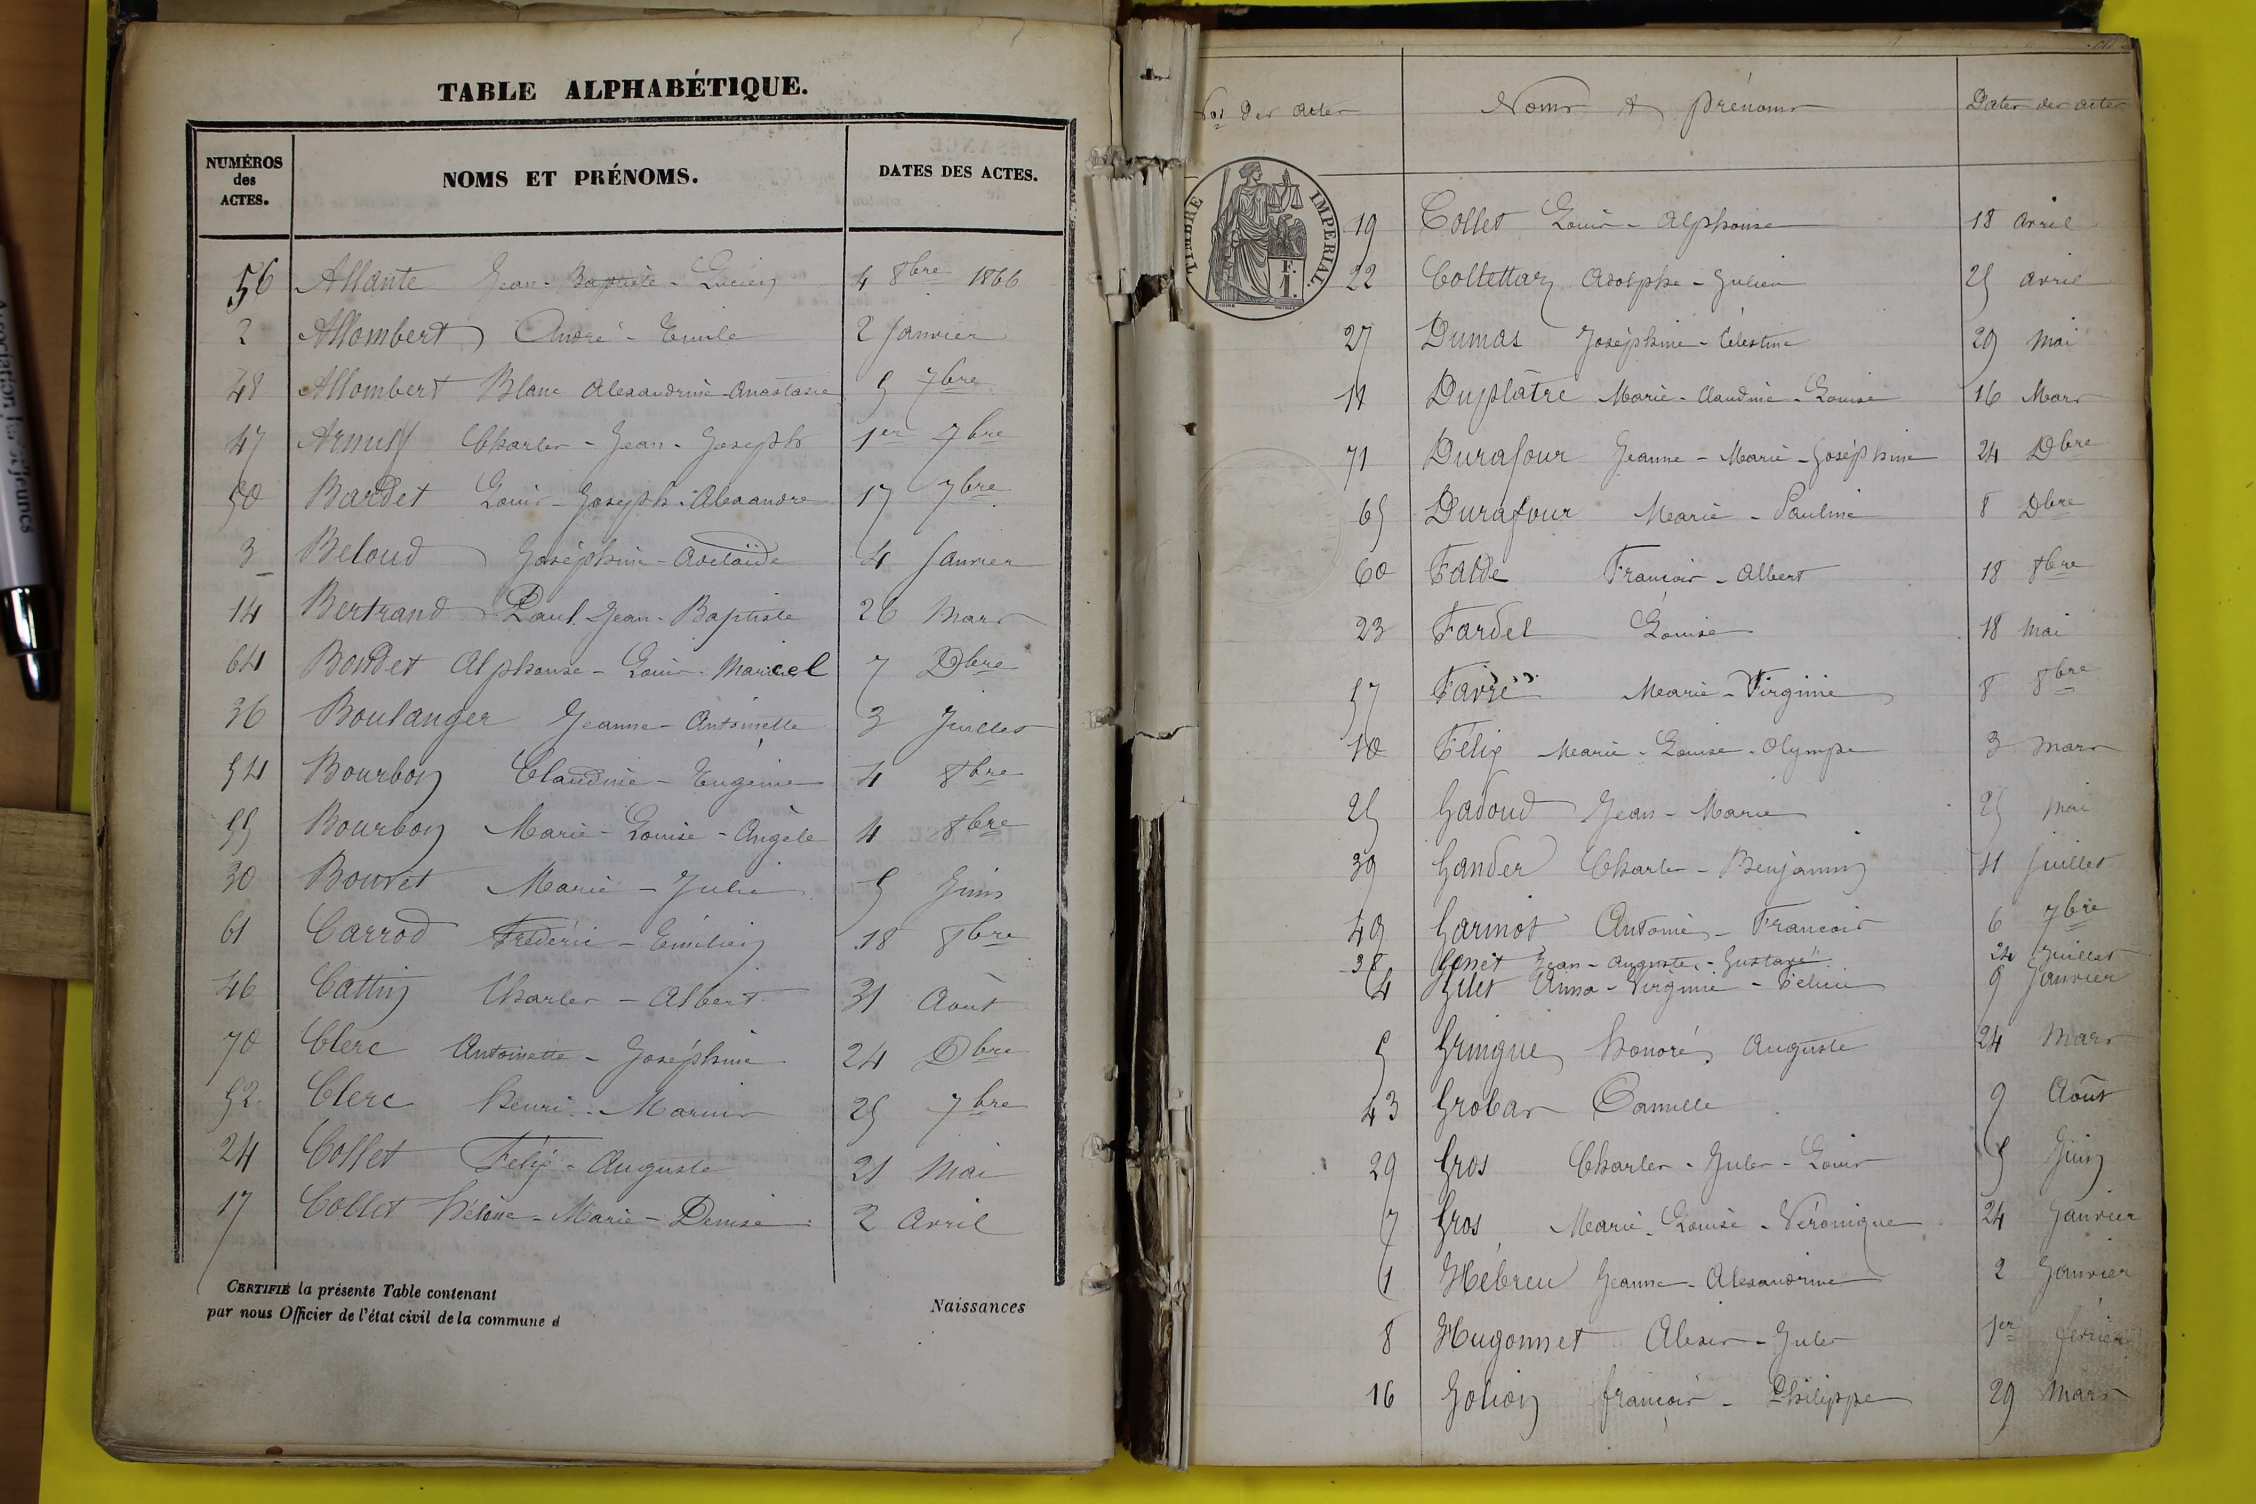 TABLE ALPHABÉTIQUE.
NUMÉROS des ACTES. NOMS ET PRÉNOMS. DATES DES ACTES.
56 Allante Jean-Baptiste-Lucien 4 8bre 1866
2 Allombert André-Emile 2 Janvier
48 Allombert Blanc Alexandrine-Anastasie 5 7bre
47 Charles-Jean-Joseph 1er 7bre
50 Bardet Louis-Joseph-Alexandre 17 7bre
3 Beloud Joséphine-Adélaïde 4 Janvier
14 Bertrand Paul-Jean-Baptiste 26 Mars
64 Bondet Alphonse-Louis-Marcel 7 Dbre
36 Boulanger Jeanne-Antoinette 3 Juillet
54 Bourbon Claudine-Eugénie 4 8bre
55 Bourbon Marie-Louise-Angèle 4 8bre
30 Bouvet Marie-Julie 5 Juin
61 Carrod Frédéric-Emilien 18 8bre
46 Cattin Charles-Albert 31 Août
70 Clerc Antoinette-Joséphine 24 Dbre
52 Clerc Henri-Marius 25 7bre
24 Collet Félix-Auguste 21 Mai
17 Collet Hélène-Marie-Denise 2 Avril
CERTIFIÉ la présente Table contenant Naissances
par nous Officier de l'état civil de la commune d
Nos des actes Noms & prénoms Dates des actes
TIMBRE IMPÉRIAL
F.
1.
19 Collet Louis-Alphonse 18 avril
22 Collettaz Adolphe-Julien 25 avril
27 Dumas Joséphine-Célestine 29 Mai
11 Duplâtre Marie-Claudine-Louise 16 Mars
71 Durafour Jeanne-Marie-Joséphine 24 Dbre
65 Durafour Marie-Pauline 8 Dbre
60 Falde François-Albert 18 8bre
23 Fardel Louise 18 Mai
57 Favre Marie-Virginie 8 8bre
10 Félix Marie-Louise-Olympe 3 Mars
25 Gadoud Jean-Marie 25 Mai
39 Gander Charles-Benjamin 31 Juillet
49 Garinot Antoine-François 6 7bre
38 Genet Jean-Auguste-Gustave 24 Juillet
4 Gilet Anna-Virginie-Félicie 9 Janvier
5 Gringue Honoré, Auguste 24 Mars
43 Grobas Camille 9 Août
29 Gros Charles-Jules-Louis 5 Juin
7 Gros Marie-Louise-Véronique 24 Janvier
1 Hébreu Jeanne-Alexandrine 2 Janvier
8 Hugonnet Alexis-Jules 1er février
16 Jolion françois-Philippe 29 Mars